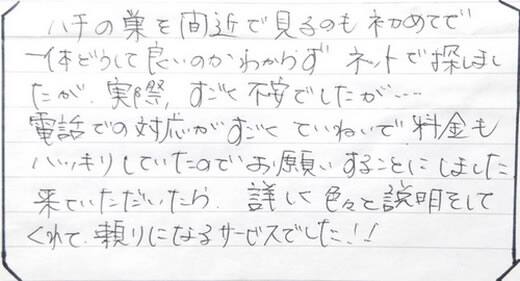 ハチの巣を間近で見るのも初めてで
一体どうして良いのかわからず ネットで探しまし
たが、実際、すごく不安でしたが……
電話での対応がすごくていねいで料金も
ハッキリしていたのでお願いすることにしました
来ていただいたら、詳しく色々と説明をして
くれて、頼りになるサービスでした!!